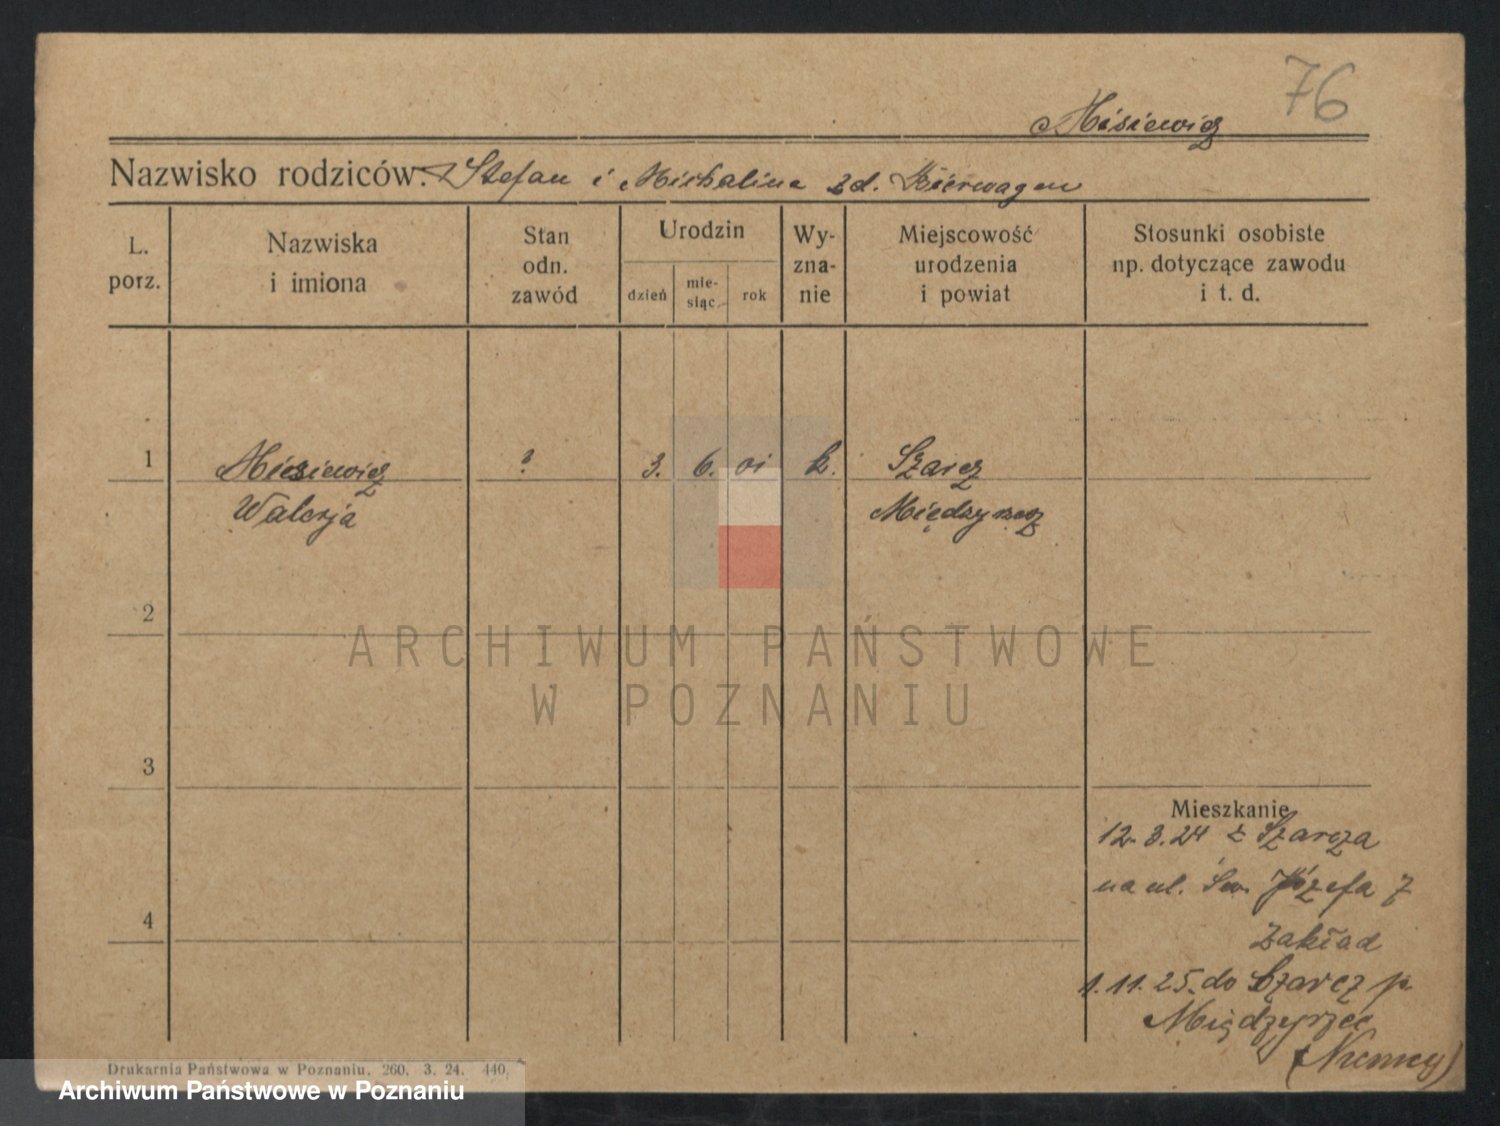 76
Misiewicz
Nazwisko rodziców: Stefan i Michalina zd. Bierwagen
L. porz.
Nazwiska i imiona
Stan odn. zawód
Urodzin
dzień
mie-
siąc
rok
Wy-
zna-
nie
Miejscowość urodzenia i powiat
Stosunki osobiste
np. dotyczące zawodu
i t. d.
1 Misiewicz ? 3. 6. 01 k. Szarcz
Walerja Międzyrzecz
2
ARCHIWUM PAŃSTWOWE
W POZNANIU
3
Mieszkanie
12.3.24 z Szarcza
na ul. Św. Józefa 7
4
Zakład
1.11.25. do Szarcz p.
Międzyrzec
(Niemcy)
Drukarnia Państwowa w Poznaniu. 260. 3. 24. 440.
Archiwum Państwowe w Poznaniu